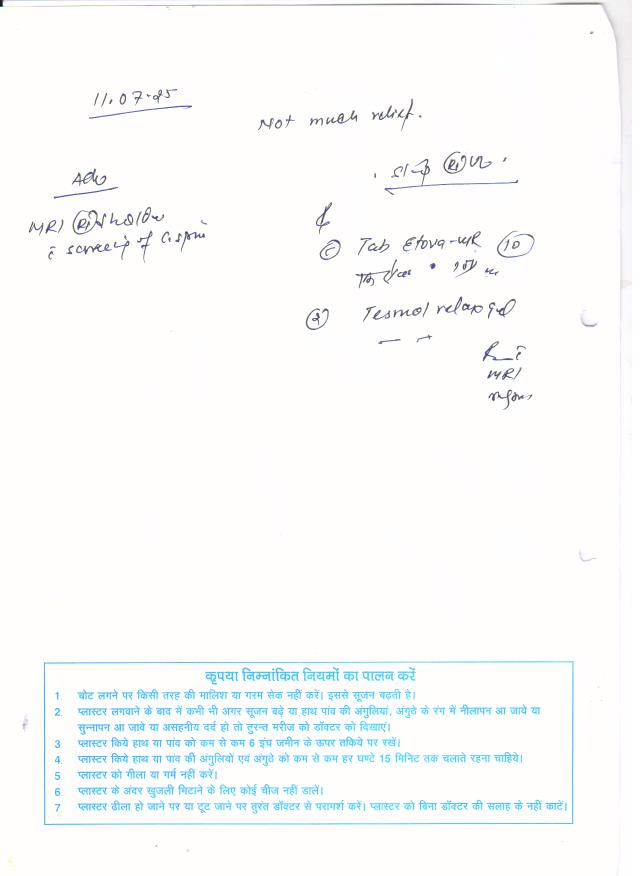 11.07-25
Not much relief.
Adv
MRI (Rt) Shoulder
c̄ screenig of C. spine
(Rt)
Tab Etova-MR (10)
(2) relax gel
MRI
कृपया निम्नांकित नियमों का पालन करें
1. चोट लगने पर किसी तरह की मालिश या गरम सेक नहीं करें। इससे सूजन बढ़ती है।
2. प्लास्टर लगवाने के बाद में कभी भी अगर सूजन बढ़े या हाथ पांव की अंगुलियां, अंगुठे के रंग में नीलापन आ जाये या
सुन्नापन आ जावे या असहनीय दर्द हो तो तुरन्त मरीज को डॉक्टर को दिखाएं।
3 प्लास्टर किये हाथ या पांव को कम से कम 6 इंच जमीन के ऊपर तकिये पर रखें।
4 प्लास्टर किये हाथ या पांव की अंगुलियों एवं अंगुठे को कम से कम हर घण्टे 15 मिनिट तक चलाते रहना चाहिये।
5 प्लास्टर को गीला या गर्म नहीं करें।
6 प्लास्टर के अंदर खुजली मिटाने के लिए कोई चीज नहीं डालें।
7 प्लास्टर ढीला हो जाने पर या टूट जाने पर तुरंत डॉक्टर से परामर्श करें। प्लास्टर को बिना डॉक्टर की सलाह के नहीं काटें।